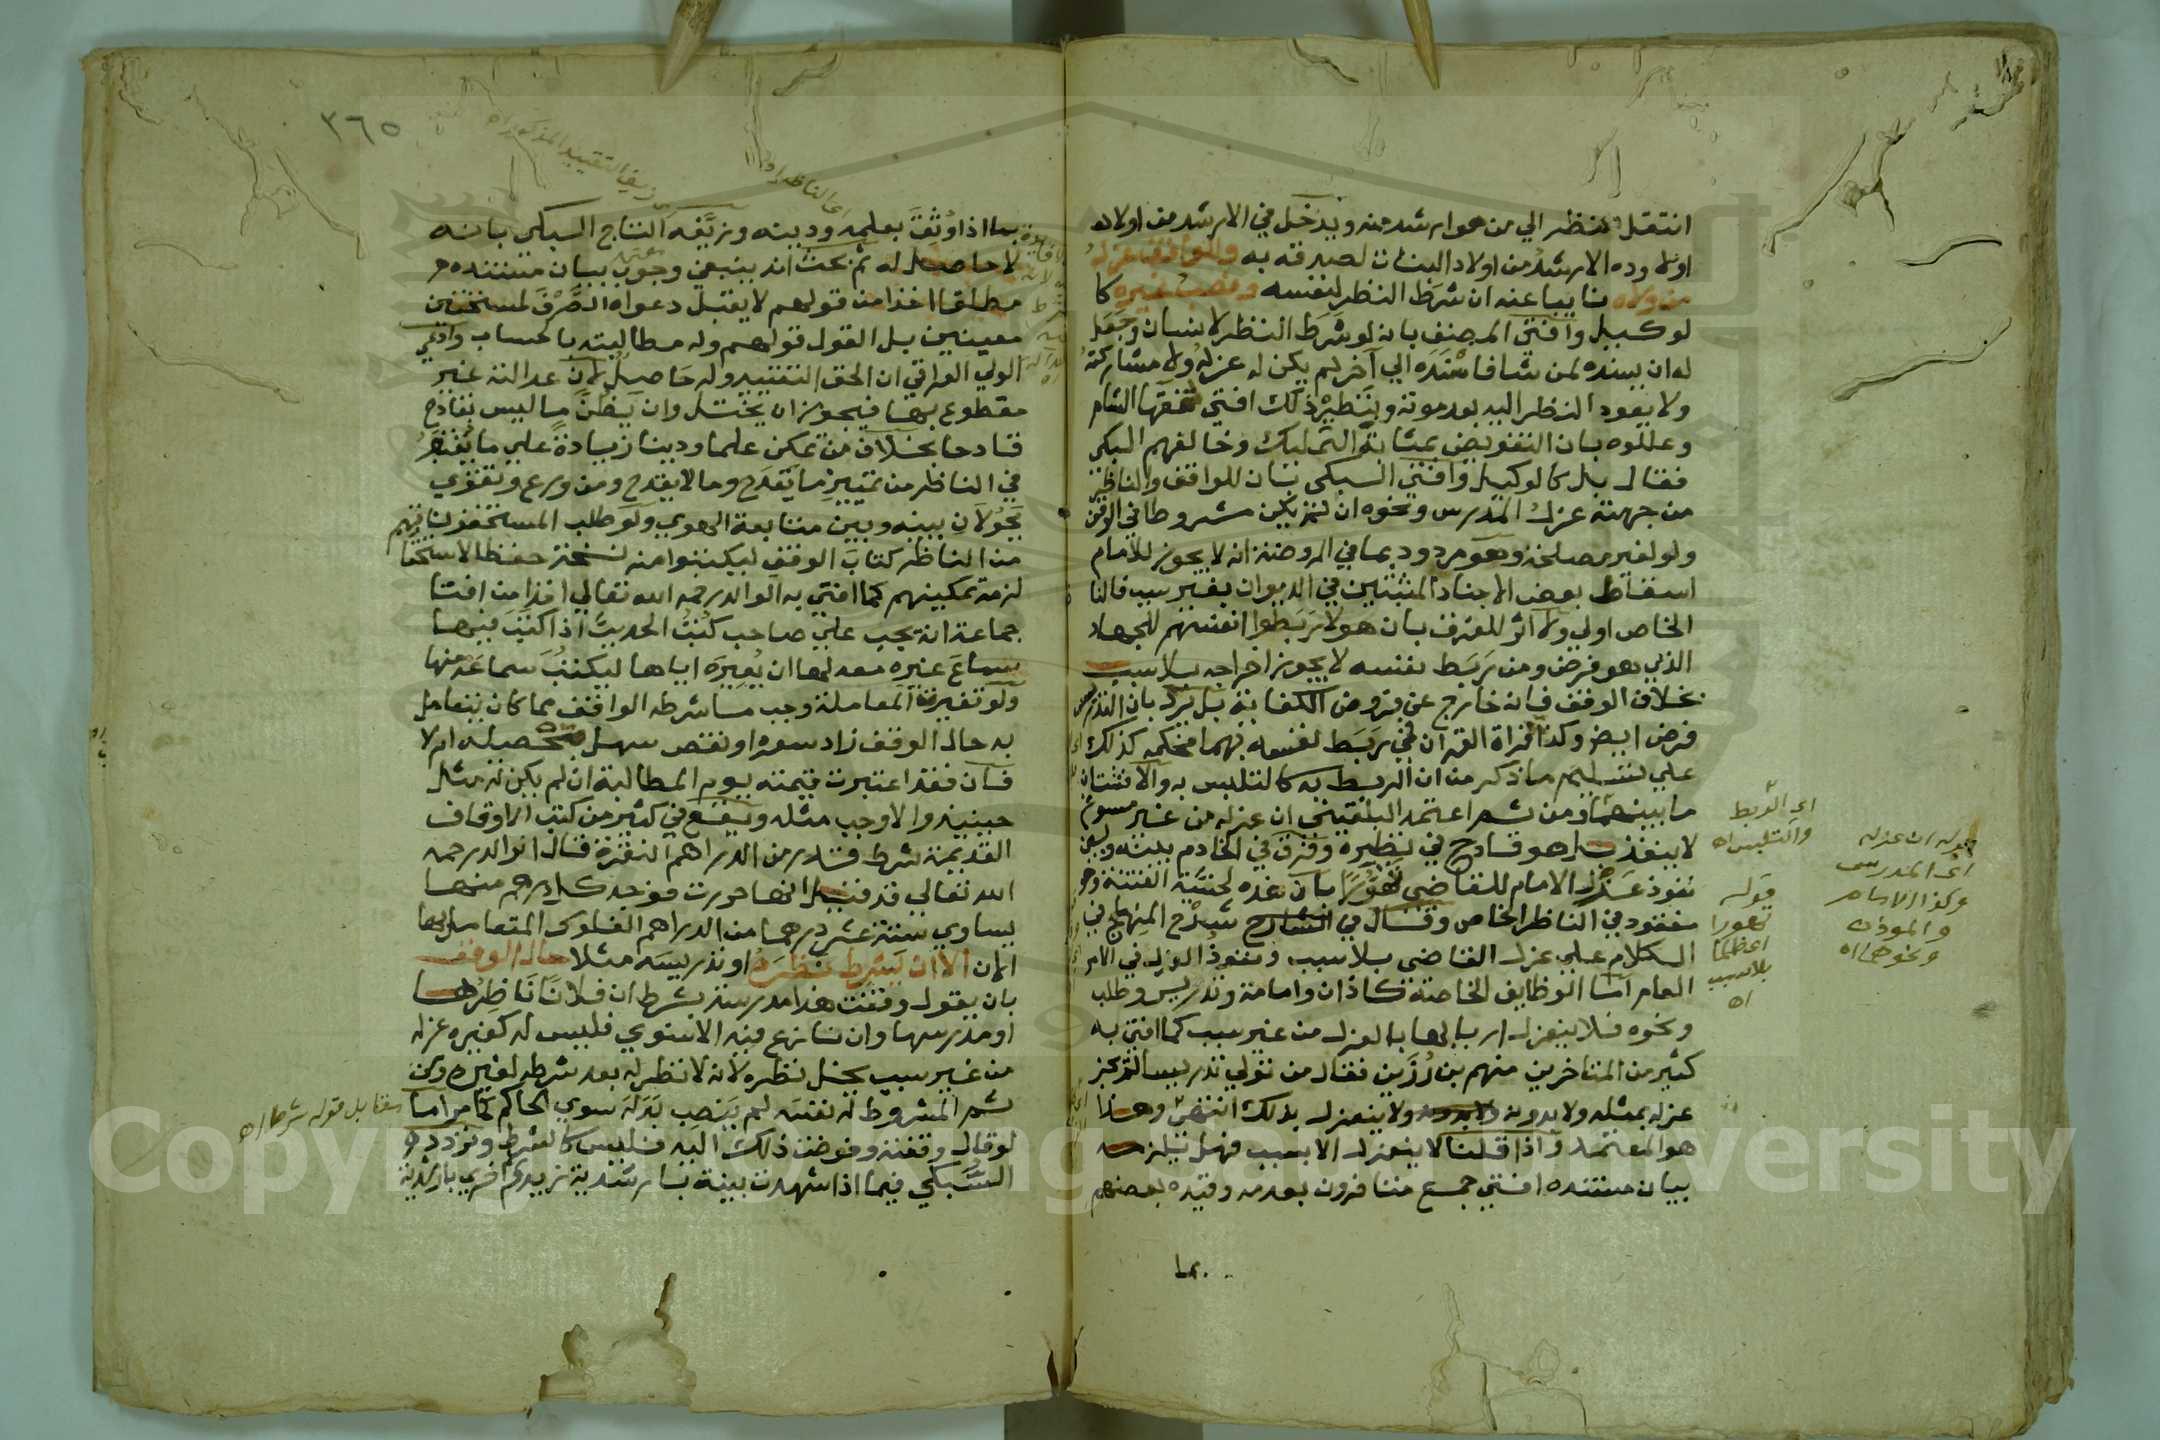 انتقل النظر الي من هو ارشد منه ويدخل في الارشد من اولاد
اولاده الارشد من اولاد البنات لصدقه به وللواقف عزل
من ولاه نايبا عنه ان شرط النظر لنفسه ونصب غيره كا
لوكيل وافتى المصنف بانه لو شرط النظر لانسان وجعل
له ان يسنده لمن شا فاسنده الي آخر لم يكن له عزله ولا مشاركته
ولا يعود النظر اليه بعد موته وبنظير ذلك افتي فقها الشام
وعللوه بان التفويض بمثابة التمليك وخالفهم السبكي
فقال بل كالوكيل وافتى السبكى بان للواقف والناظر
من جهته عزل المدرس ونحوه ان لم يكن مشروطا في الوقف
ولو لغير مصلحة وهو مردود بما في الروضة انه لا يجوز للامام
اسقاط بعض الاجناد المثبتين في الديوان بغير سبب فالنا
الخاص اولي ولا اثر للفرق بان هولا ربطوا انفسهم للجهاد
الذي هو فرض ومن ربط نفسه لا يجوز اخراجه بلا سبب
بخلاف الوقف فانه خارج عن فروض الكفاية بل يرد بان التدريس
فرض ايض وكذا قراة القران فمن ربط نفسه بهما فحكمه كذلك
علي تسليم ما ذكر من ان الربط به كالتلبس به والا فشتان
ما بينهما ومن ثم اعتمد البلقيني ان عزله من غير مسوغ
لا ينفذ بل هو قادح في نظره وفرق في الخادم بينه وبين
نفوذ عزل الامام للقاضي تهورا بان هذه لخشية الفتنة وهو
مفقود في الناظر الخاص وقال في شرح المنهاج في
الكلام علي عزل القاضي بلا سبب ونفوذ العزل في الامر
العام اما الوظايف الخاصة كاذان وامامة وتدريس وطلب
ونحوه فلا ينعزل اربابها بالعزل من غير سبب كما افتى به
كثير من المتاخرين منهم بن رزين فقال من تولي تدريسا لم يجز
عزله بمثله ولا بدونه ولا ينعزل بذلك انتهى وهذا
هو المعتمد واذا قلنا لا ينعزل الا بسبب فهل يلزمه
بيان مستنده افتي جمع متاخرون بعدمه وقيده بعضهم
بما
اى الربط
والتلبس اه
قوله
تهورا
اى ظلما
بلا سبب
اه
قوله ان عزله
اى المدرس
وكذا الامام
والموذن
ونحوهما اه
٣٦٥
اى الناظر اه
بما اذا وثق بعلمه ودينه وزيفه التاج السبكي بانه
لا حاصل له ثم بحث انه ينبغي وجوب بيان مستنده
مطلقا اخذا من قولهم لا يقبل دعواه الصرف لمستحقين
معينين بل القول قولهم وله مطالبته بالحساب وادعي
الولي العراقي ان الحق التقييد وله حاصل لان عدالته غير
مقطوع بها فيجوز ان يختل وان يظن ما ليس بقادح
قادحا بخلاف من تمكن علما ودينا زيادة علي ما يعتبر
في الناظر من تمييز ما يقدح وما لا يقدح ومن ورع وتقوي
يحولان بينه وبين متابعة الهوي ولو طلب المستحقون
من الناظر كتاب الوقف ليكتبوا منه نسخة حفظا لاستحقا
لزمه تمكينهم كما افتي به الوالد رحمه الله تعالي اخذا من افتا
جماعة انه يجب علي صاحب كتب الحديث اذا كتب فيها
سماع غيره معه لها ان يعيره اياها ليكتب سماعه منها
ولو تغيرت المعاملة وجب ما شرطه الواقف مما كان يتعامل
به حال الوقف زاد سعره او نقص سهل تحصيله ام لا
فان فقد اعتبرت قيمته يوم المطالبة ان لم يكن له مثل
حينيذ والا وجب مثله ويقع في كثير من كتب الاوقاف
القديمة شرط قدر من الدراهم النقرة قال الوالد رحمه
الله تعالي قد قيل انها حررت فوجد كل درهم منها
يساوي ستة عشر درهما من الدراهم الفلوس المتعامل بها
الان الا ان يشرط نظره او تدريسه مثلا حال الوقف
بان يقول وقفت هذا مدرسة بشرط ان فلانا ناظرها
او مدرسها وان نازع فيه الاسنوي فليس له كغيره عزله
من غير سبب يخل بنظره لانه لا نظر له بعد شرطه لغيره ومن
ثم لو عزل المشروط له نفسه لم ينصب بدله سوي الحاكم كما مر اما
لو قال وقفته وفوضت ذلك اليه فليس كالشرط وتردد
السبكي فيما اذا شهدت بينة بارشدية زيد ثم اخري بارشدية
مقابل قوله شرط اه